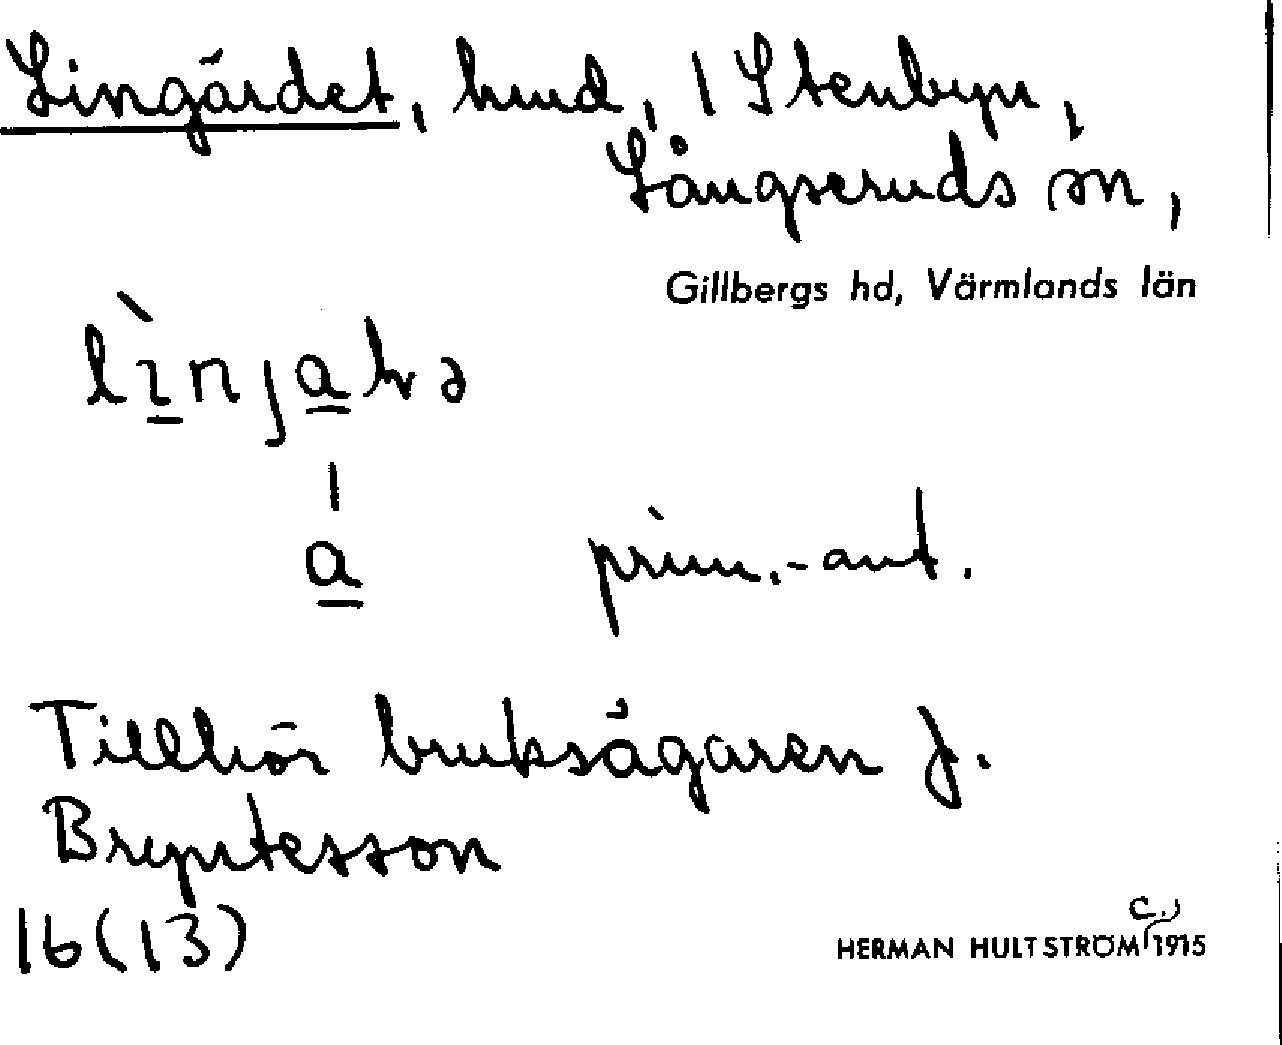 Lingärdet, hmd, 1 Stenbyn,
Långseruds sn,
Gillbergs hd, Värmlands län
prim.-ant.
a
Tillhör bruksägaren J.
Bryntesson
16(13)
c.
HERMAN HULTSTRÖM 1915